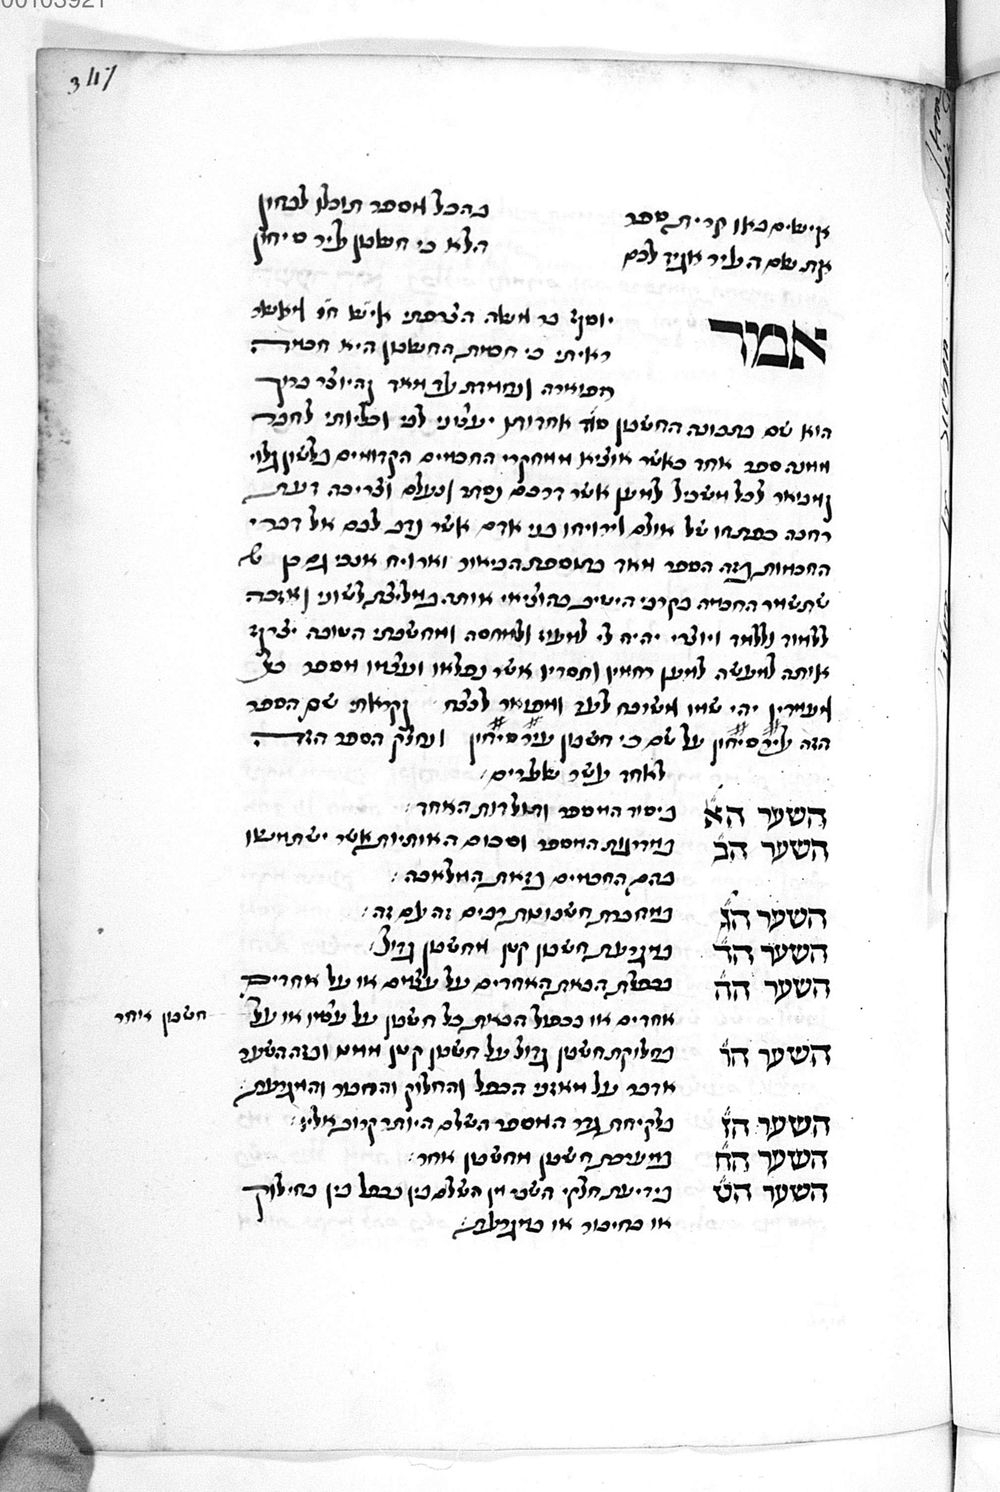 00103921
347
אישים באו קרית ספר בהכל מספר תוכלו לבחון
את שם העיר אגיד לכם הלא כי חשבון עיר סיחון
אמר יוסף בר משה הצרפתי איש חי מאשר
ראיתי כי חכמת החשבון היא חכמה
מפוארה ועומדת עד מאד והיוצר ברוך
הוא שם בתבונה החשבון סוד אחדותו יעצוני לבי וכליותי לחבר
ממנה ספר אחד כאשר אוציא ממחקרי החכמים הקדומים בלשון גלוי
ומבואר לכל משכיל למען אשר דרכם נסתר ונעלם וצריכה דעת
רחבה כפתחו של אולם וירויחו בני אדם אשר נדב לבם אל דברי
החכמות בזה הספר מאד בתוספת הביאור וארויח אנכי גם כן ש
שתשמר החכמה בקרבי היטיב בהוציאי אותה במליצת לשוני ואזכה
ללמוד וללמד ויוצרי יהיה לי למעוז ולמחסה ומחשבתי הטובה יצרף
אותה למעשה למען רחמיו וחסדיו אשר נפלאו ועצמו מספר כל
מעמדין יהי שמו משובח לעד ומפואר לנצח וקראתי שם הספר
הזה עיר סיחון על שם כי חשבון עיר סיחון ונחלק הספר הזה
לאחד עשר שערים:
השער הא ביסוד המספר ותולדות האחד:
השער הב במדרגות המספר וסכום האותיות אשר ישתמשו
בהם החכמים בזאת המלאכה:
השער הג במחברת חשבונות רבים זה עם זה:
השער הד במגרעת חשבון קטן מחשבון גדול:
השער הה בכפלת הכאת האחדים על עצמם או על אחרים
אחדים או בכפול הכאת כל חשבון על עצמו או על חשבון אחר
השער הו בחלוקת חשבון גדול על חשבון קטן ממנו ובזה השער
אדבר על מאזני הכפל והחלוק והחבור והמגרעת:
השער הז בלקיחת גדר המספר השלם היותר קרוב אליו:
השער הח במערכת חשבון מחשבון אחר:
השער הט בידיעת חלקי השבר מן השלם בין בכפל בין בחילוק
או בחיבור או במגרעת: